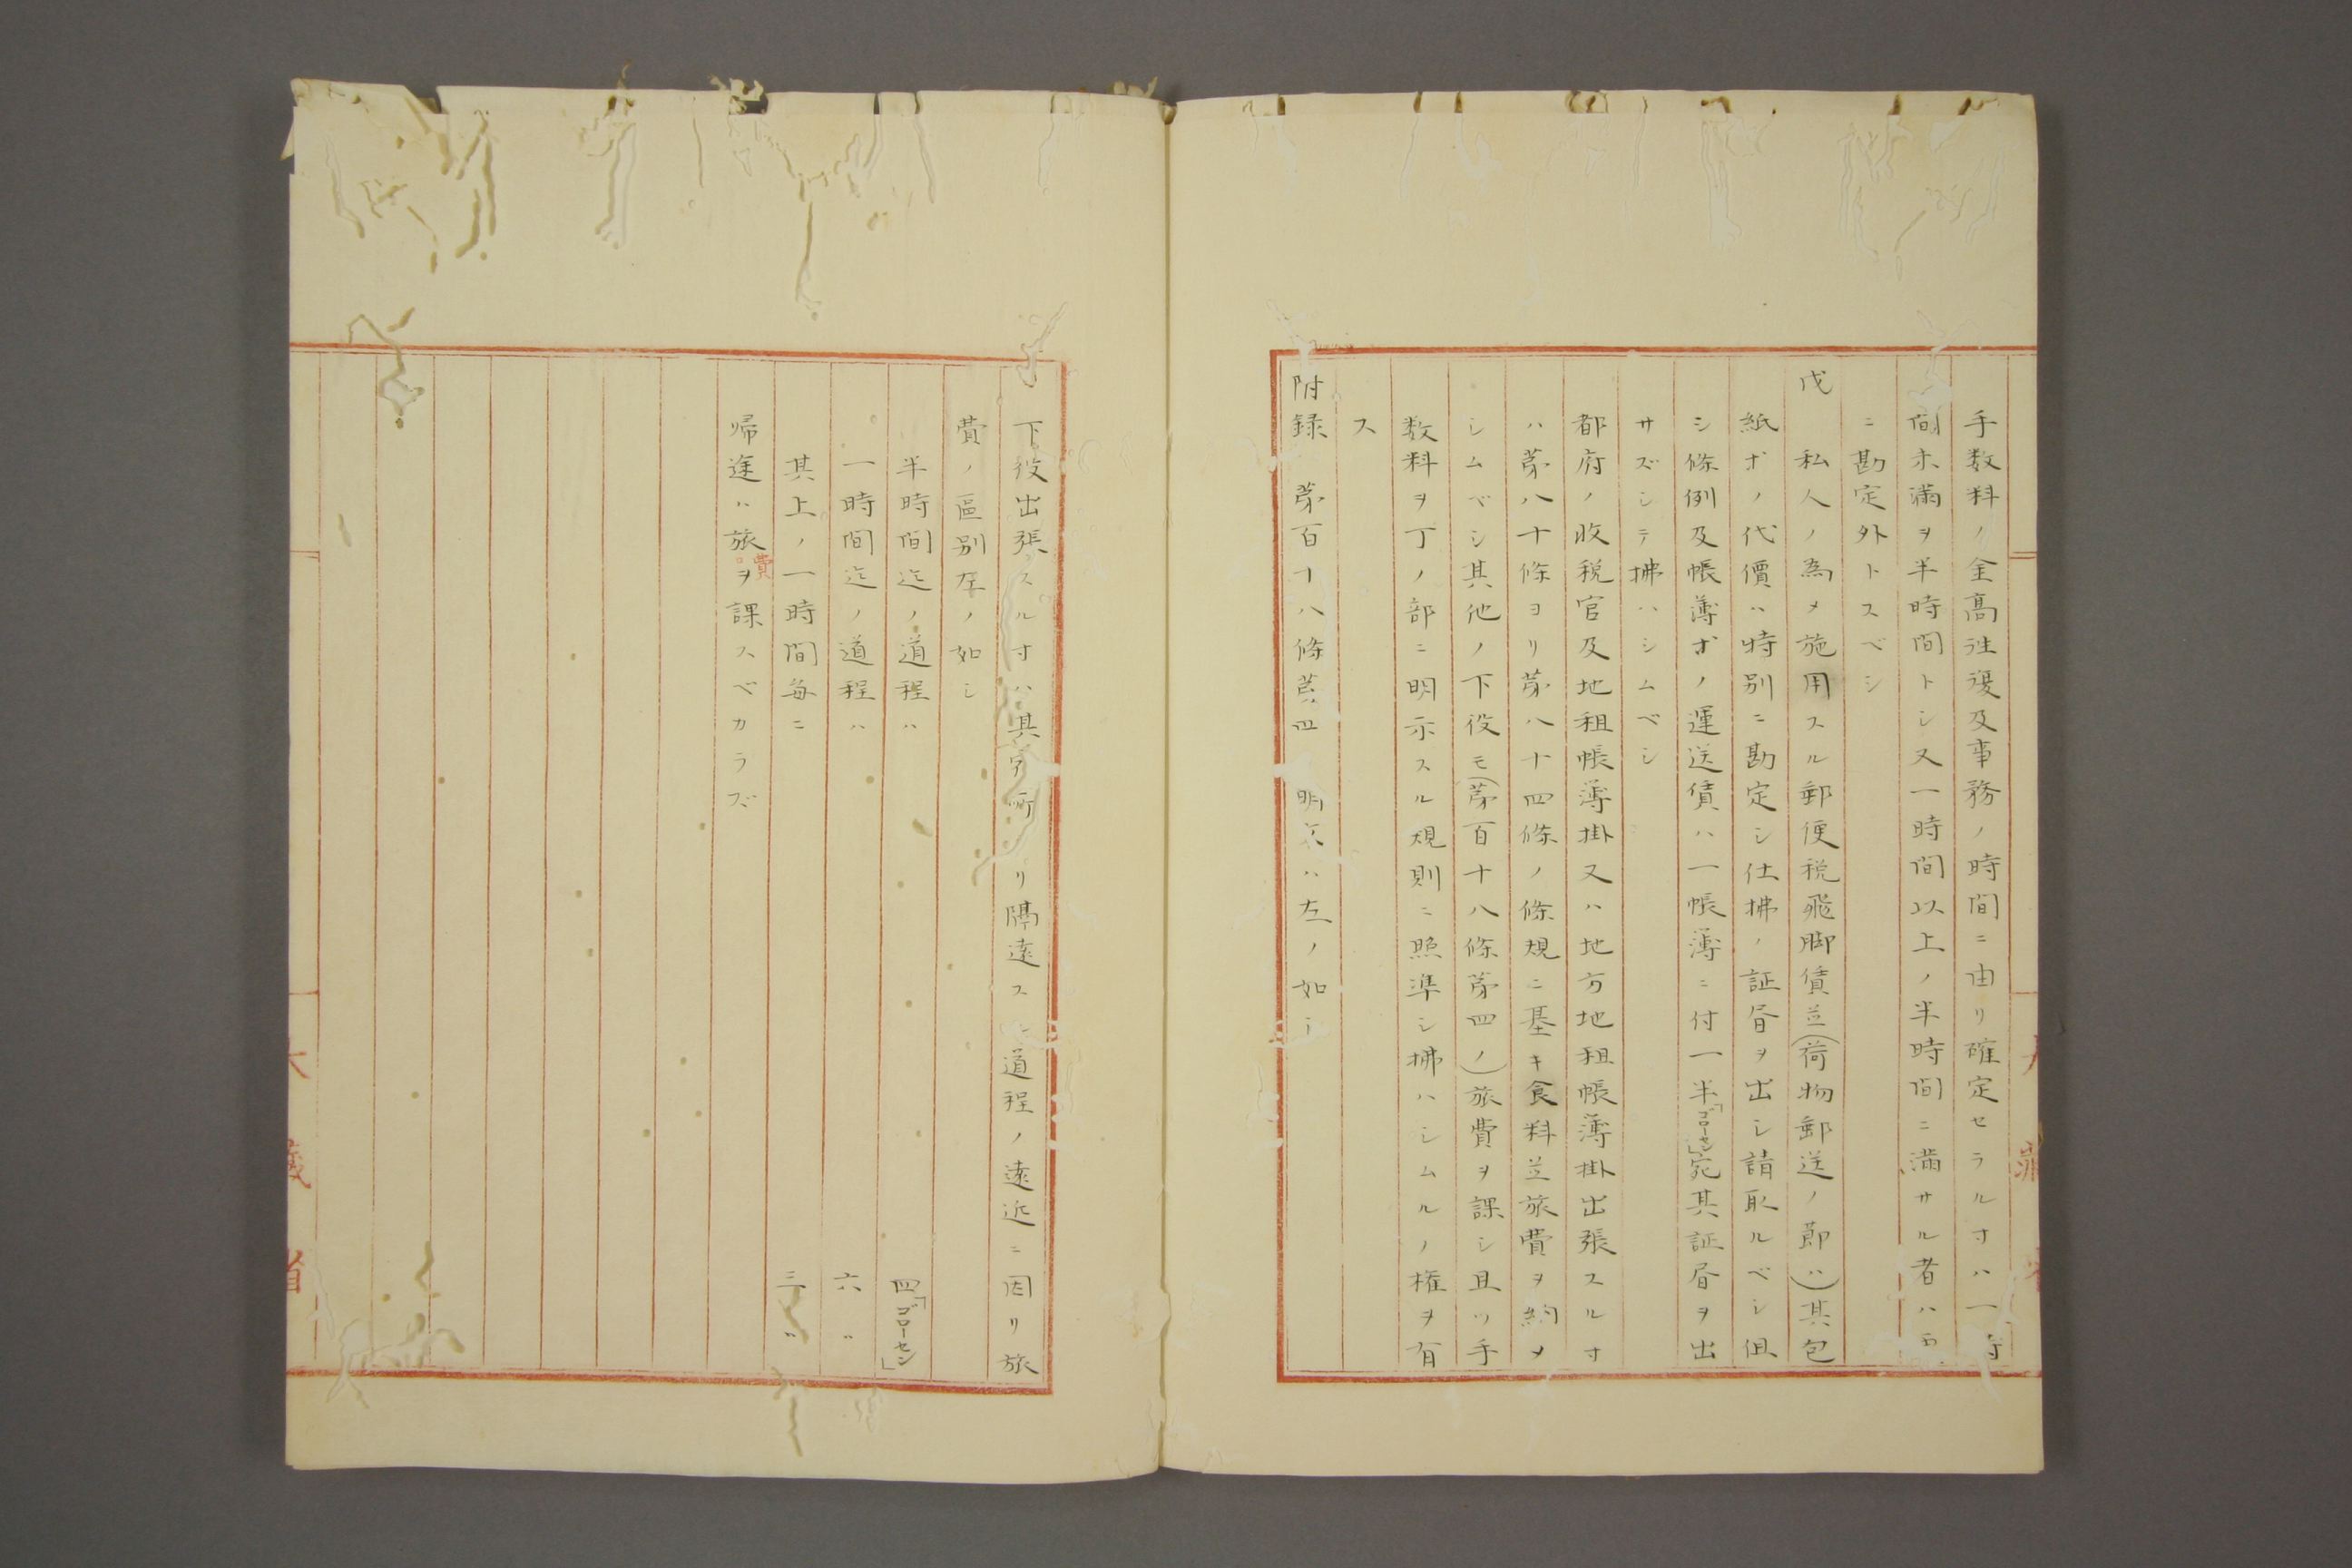 手数料ノ全高往復及事務ノ時間ニ由リ確定セラルヿハ一時
間未滿ヲ半時間トシ又一時間以上ノ半時間ニ滿サル者ハ
ニ勘定外トスベシ
戊 私人ノ為メ施用スル郵便税飛脚賃並(荷物郵送ノ節ハ)其包
紙ホノ代價ハ特別ニ勘定シ仕拂ノ証昏ヲ出シ請取ルベシ但
シ條例及帳薄ホノ運送賃ハ一帳薄ニ付一半「ゴローセン」宛其証昏ヲ出
サズシテ拂ハシムベシ
都府ノ收税官及地租帳薄掛又ハ地方地租帳薄掛出張スルヿ
ハ苐八十條ヨリ苐八十四條ノ條規ニ基キ食料並旅費ヲ納メ
シムベシ其他ノ下役モ(苐百十八條苐四ノ)旅費ヲ課シ且ツ手
数料ヲ丁ノ部ニ明示スル規則ニ照準シ拂ハシムルノ権ヲ有
ス
附録 苐百十八條苐四 明文ハ左ノ如シ
下役出張スルヿハ其 所ヨリ隔遠ス 道程ノ遠近ニ因リ旅
費ノ區別左ノ如シ
半時間迄ノ道程ハ 四「ゴローセン」
一時間迄ノ道程ハ 六〃
其上ノ一時間毎ニ 三〃
帰途ハ旅費ヲ課スベカラズ
大藏省